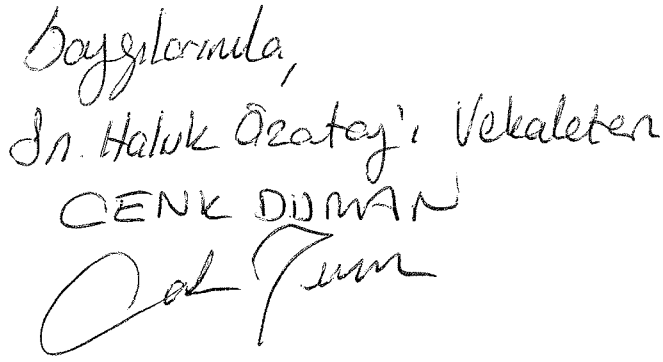 Saygılarımla,
Sn. Haluk Özatay'ı Vekaleten
CENK DUMAN